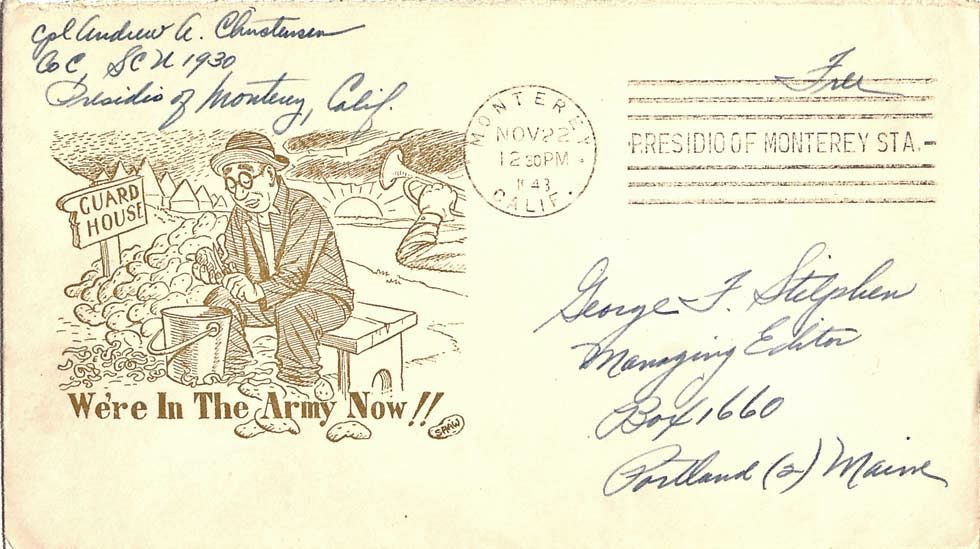 Cpl Andrew A. Christensen
Co C, SCU 1930
Presidio of Monterey, Calif.
Free
MONTEREY
NOV 22
12 30 PM
1943
CALIF.
PRESIDIO OF MONTEREY STA.
GUARD
HOUSE
George F. Stilphen
Managing Editor
Box 1660
Portland (2) Maine
We're In The Army Now!!
SPAW